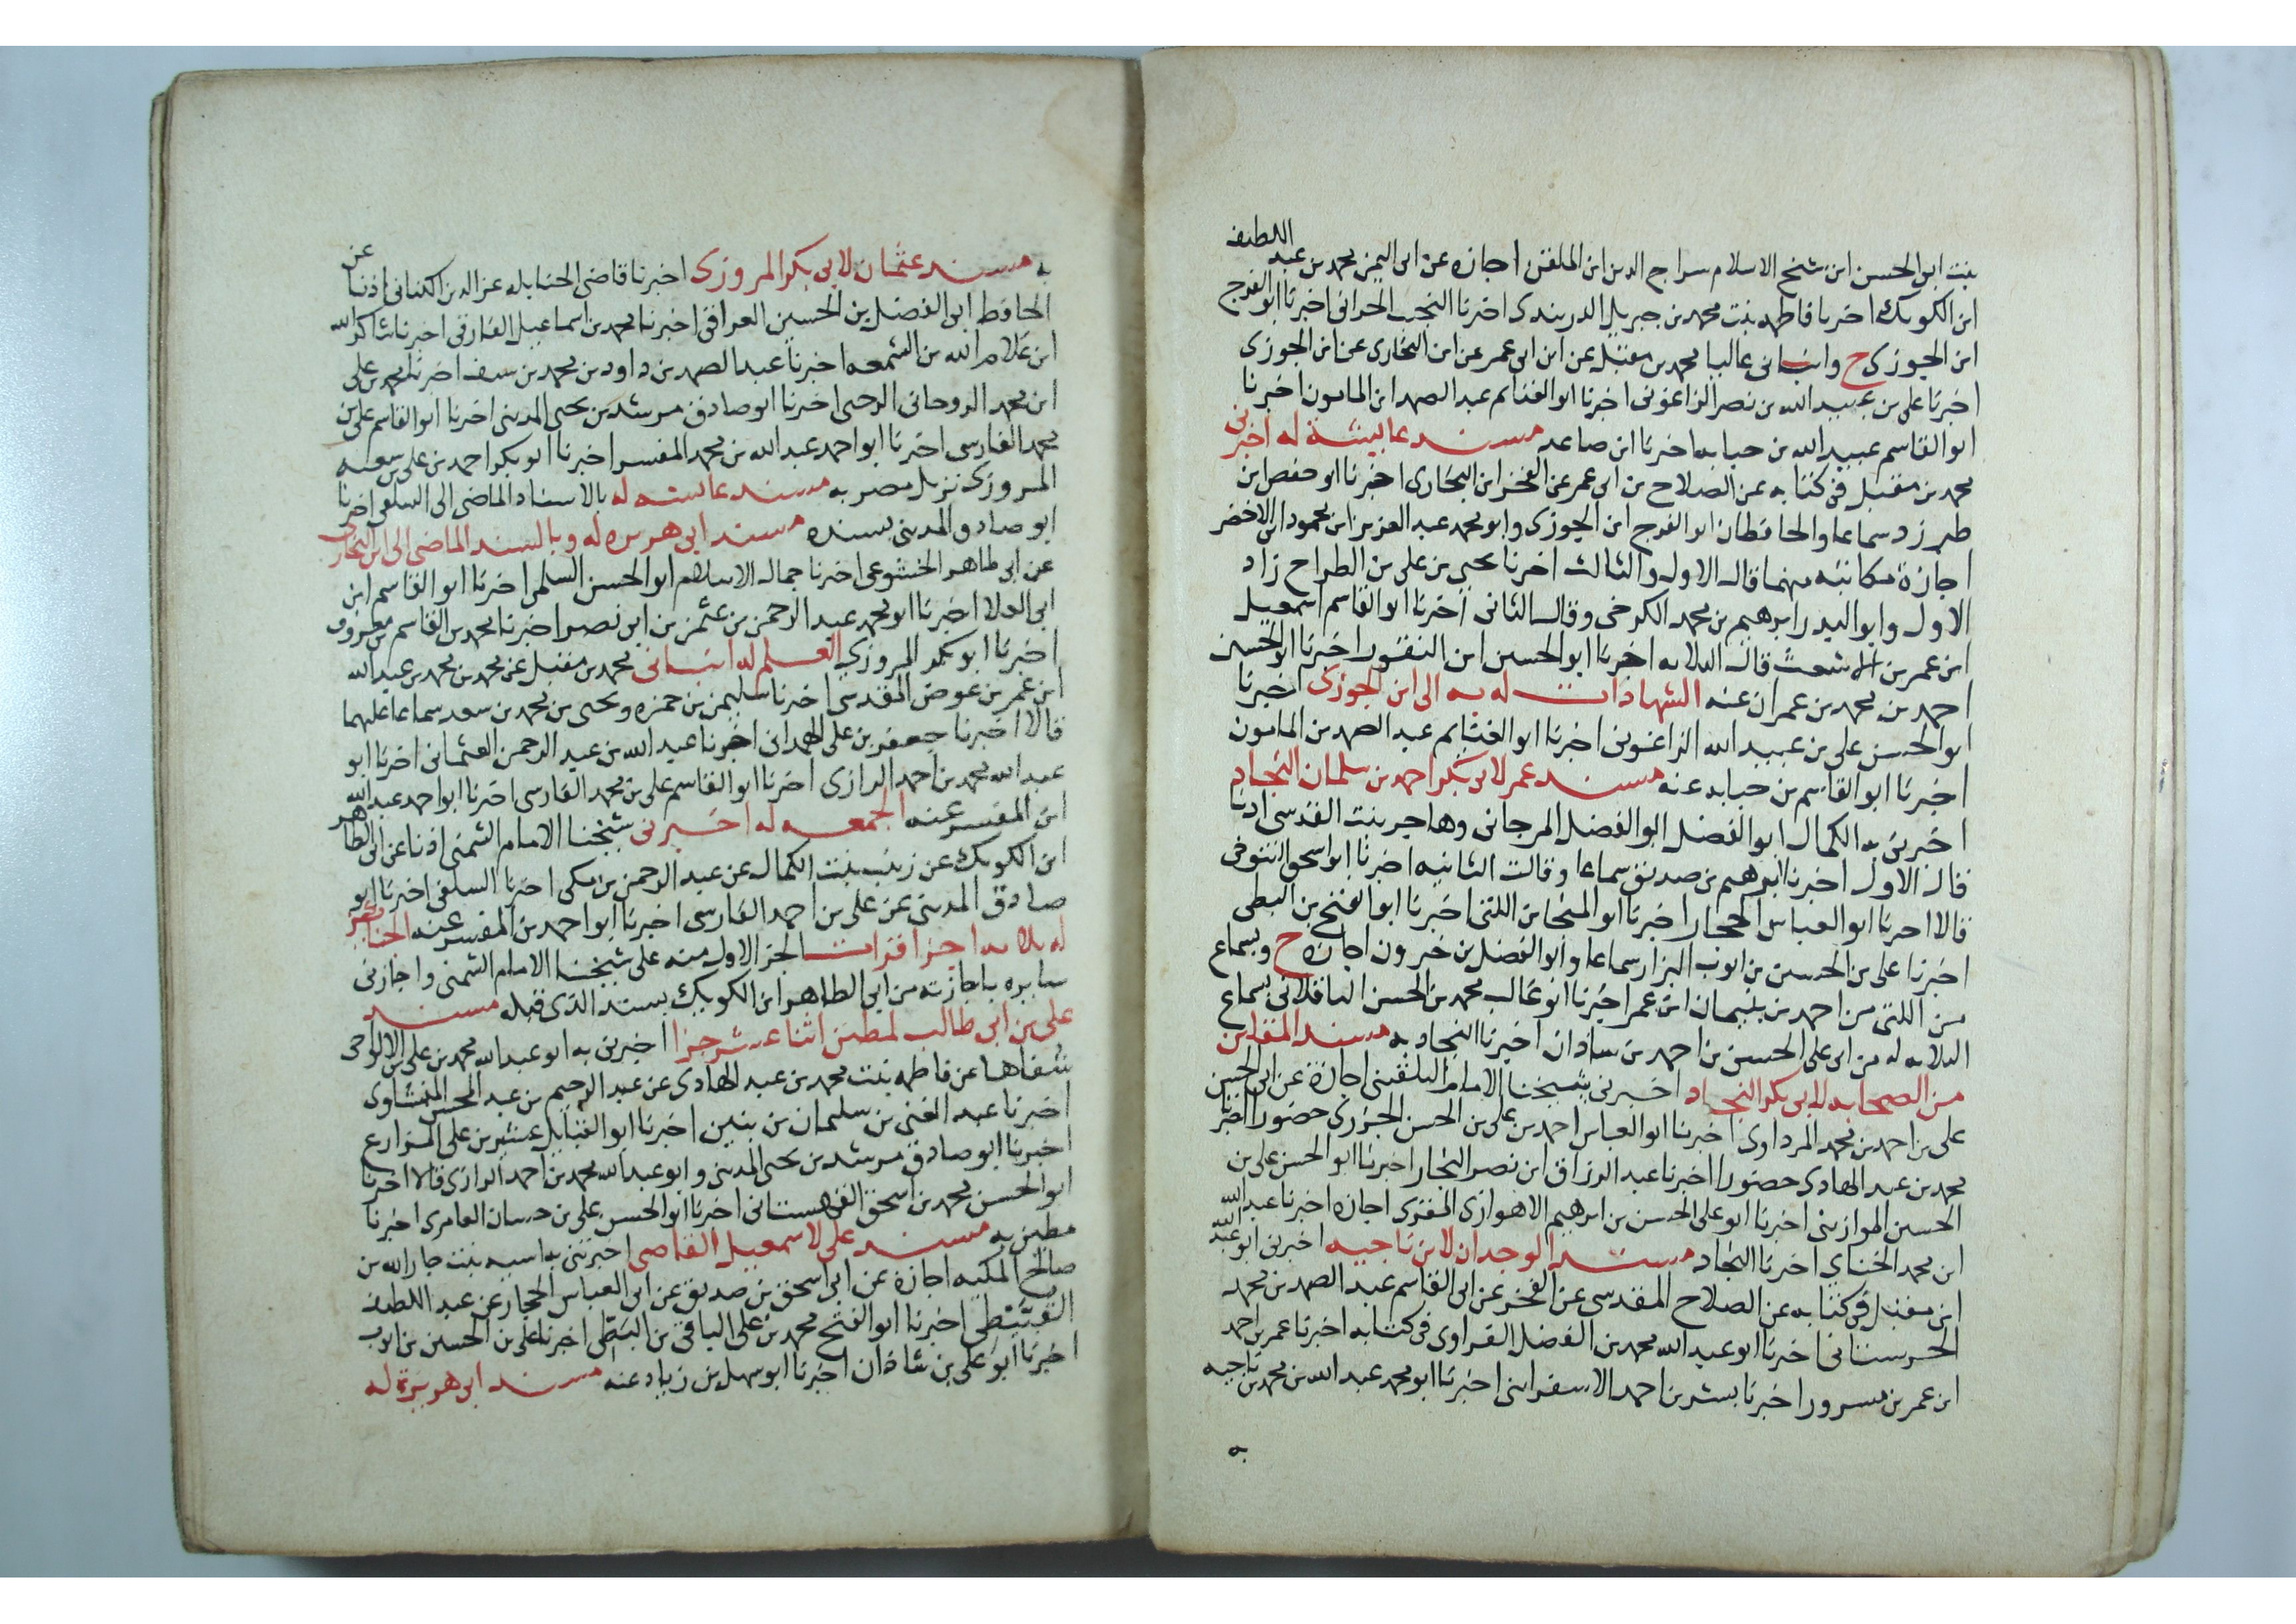 بنت ابى الحسن ابن شيخ الاسلام سراج الدين ابن الملقن اجازه عن ابى اليمن محمد بن عبد اللطيف
ابن الكويك اخبرنا فاطمه بنت محمد بن جبريل الدربندى اخبرنا النجيب الحرانى اخبرنا ابو الفرج
ابن الجوزى ح وانبانى عاليا محمد بن مقبل عن ابن ابى عمر عن ابن البخارى عن ابن الجوزى
اخبرنا على بن عبيد الله بن نصر الزاغونى اخبرنا ابو الغنائم عبد الصمد ابن المامون اخبرنا
ابو القاسم عبيد الله بن حبابه اخبرنا ابن صاعد مسند عايشة له اخبرنى
محمد بن مقبل فى كتابه عن الصلاح بن ابى عمر عن الفخر ابن البخارى اخبرنا ابو حفص ابن
طبرزد سماعا والحافظان ابو الفرج ابن الجوزى وابو محمد عبد العزيز ابن محمود ابن الاخضر
اجازة مكاتبه منهما قال الاول والثالث اخبرنا يحيى بن على بن الطراح زاد
الاول وابو البدر ابرهيم بن محمد الكرخى وقال الثانى اخبرنا ابو القاسم اسمعيل
ابن عمر بن الاشعث قال الثلاثه اخبرنا ابو الحسين ابن النقور اخبرنا ابو الحسن
احمد بن محمد بن عمران عنه الشهادات له به الى ابن الجوزى اخبرنا
ابو الحسن على بن عبيد الله الزاغونى اخبرنا ابو الغنايم عبد الصمد بن المامون
اخبرنا ابو القاسم بن حبابه عنه مسند عمر لابى بكر احمد بن سلمان النجاد
اخبرنى به الكمال ابو الفضل ابو الفضل المرجانى وهاجر بنت القدسى اذنا
قال الاول اخبرنا ابرهيم بن صديق سماعا وقالت الثانيه اخبرنا ابو اسحق التنوخى
قالا اخبرنا ابو العباس الحجار اخبرنا ابو المنجا بن اللتى اخبرنا ابو الفتح بن البطى
اخبرنا على بن الحسين بن ايوب البزار سماعا وابو الفضل بن خيرون اجازه ح وبسماع
من اللتى من احمد بن بنيمان ابن عمر اخبرنا ابو غالب محمد بن الحسن الباقلانى بسماع
الثلاثه له من ابى على الحسن بن احمد بن ساذان اخبرنا النجاد به مسند المقلين
من الصحابه لابى بكر النجاد اخبرنى شيخنا الامام البلقينى اجازة عن ابى الحسن
على بن احمد بن محمد المرداوى اخبرنا ابو العباس احمد بن على بن الحسن الجزرى حضورا اخبرنا
محمد بن عبد الهادى حضورا اخبرنا عبد الرزاق ابن نصر النجار اخبرنا ابو الحسن على بن
الحسين الموازينى اخبرنا ابو على الحسن بن ابرهيم الاهوازى المقرى اجازه اخبرنا عبد الله
ابن محمد الحنائى اخبرنا النجاد مسند الوحدان لابن ناجيه اخبرنى ابو عبد الله
ابن مقبل فى كتابه عن الصلاح المقدسى عن الفخر عن ابى القاسم عبد الصمد بن محمد
الحرستانى اخبرنا ابو عبد الله محمد بن الفضل الفراوى فى كتابه اخبرنا عمر بن احمد
ابن عمر بن مسرور اخبرنا بشر بن احمد الاسفراينى اخبرنا ابو محمد عبد الله بن محمد بن ناجيه
به
به مسند عثمان لابى بكر المروزى اخبرنا قاضى الحنابله عز الدين الكنانى اذنا عن
الحافظ ابى الفضل بن الحسين العراقى اخبرنا محمد بن اسماعيل الفارقى اخبرنا شاكر الله
ابن غلام الله بن الشمعه اخبرنا عبد الصمد بن داود بن محمد بن سيف اخبرنا محمد بن على
ابن محمد الروحانى الرحبى اخبرنا ابو صادق مرشد بن يحيى المدينى اخبرنا ابو القاسم على بن
محمد الفارسى اخبرنا ابو احمد عبد الله بن محمد المفسر اخبرنا ابو بكر احمد بن على بن سعيد
المروزى نزيل مصر به مسند عايشه له بالاسناد الماضى الى السلفى اخبرنا
ابو صادق المدينى بسنده مسند ابى هريره له وبالسند الماضى الى ابن البخارى
عن ابى طاهر الخشوعى اخبرنا جمال الاسلام ابو الحسن السلمى اخبرنا ابو القاسم ابن
ابى العلا اخبرنا ابو محمد عبد الرحمن بن عثمن بن ابى نصر اخبرنا محمد بن القاسم بن معروف
اخبرنا ابو بكر المروزى العلم له انبانى محمد بن مقبل عن محمد بن محمد بن عبد الله
ابن عمر بن عوض المقدسى اخبرنا سليمن بن حمزه ويحيى بن محمد بن سعد سماعا عليهما
قالا اخبرنا جعفر بن على الهمدانى اخبرنا عبد الله بن عبد الرحمن العثمانى اخبرنا ابو
عبد الله محمد بن احمد الرازى اخبرنا ابو القاسم على بن محمد الفارسى اخبرنا ابو احمد عبد الله
ابن المفسر عنه الجمعه له اخبرنى شيخنا الامام الشمنى اذنا عن ابى الطاهر
ابن الكويك عن زينب بنت الكمال عن عبد الرحمن بن مكى اخبرنا السلفى اخبرنا ابو
صادق المدينى عن على بن احمد الفارسى اخبرنا ابو احمد بن المفسر عنه الجنائز
له ثلاثه اجزا قرات الجز الاول منه على شيخنا الامام الشمنى واجازنى
سايره باجازته من ابى الطاهر ابن الكويك بسند الذى قبله مسند
على بن ابى طالب لمطين اثنا عشر جزا اخبرنى به ابو عبد الله محمد بن على بن الالواحى
شفاها عن فاطمه بنت محمد بن عبد الهادى عن عبد الرحيم بن عبد المحسن المنشاوى
اخبرنا عبد الغنى بن سليمان بن بنين اخبرنا ابو القبايل عشير بن على المزارع
اخبرنا ابو صادق مرشد بن يحيى المدينى وابو عبد الله محمد بن احمد الرازى قالا اخبرنا
ابو الحسن محمد بن اسحق القهستانى اخبرنا ابو الحسن على بن حسان العامرى اخبرنا
مطين به مسند على لاسمعيل القاضى اخبرتنى به اسيه بنت جار الله بن
صالح المكيه اجازة عن ابى اسحق بن صديق عن ابى العباس الحجار عن عبد اللطيف
القبيطى اخبرنا ابو الفتح محمد بن على الباقى بن البطى اخبرنا على بن الحسين بن ايوب
اخبرنا ابو على بن شاذان اخبرنا ابو سهل بن زياد عنه مسند ابى هريرة له